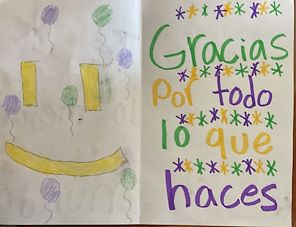 Gracias
por todo
lo que
haces